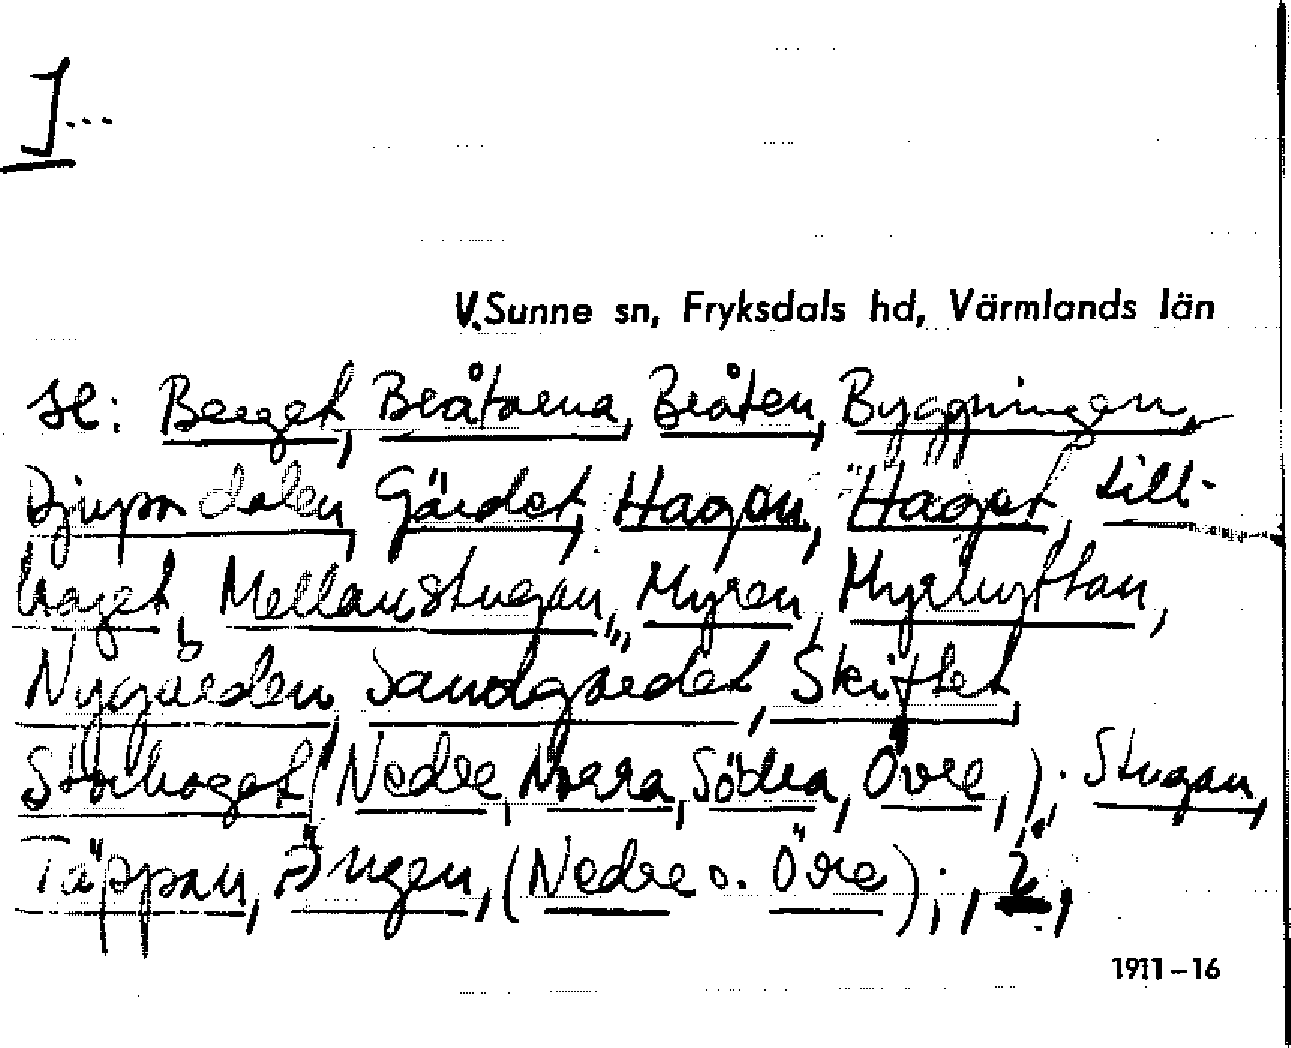 I...
V. Sunne sn, Fryksdals hd, Värmlands län
se: Berget, Bråtarna, Bråten, Byggningen,
Djupa dalen, Gärdet, Hagen, Häget, till-
haget, Mellanstugan, Myren, Myrluttan,
Nygården, Sandgärdet, Skiftet,
Storhaget (Nedre, Norra, Södra, Övre,); Stugan,
Täppan, Ängen, (Nedre o. Övre);
1911-16